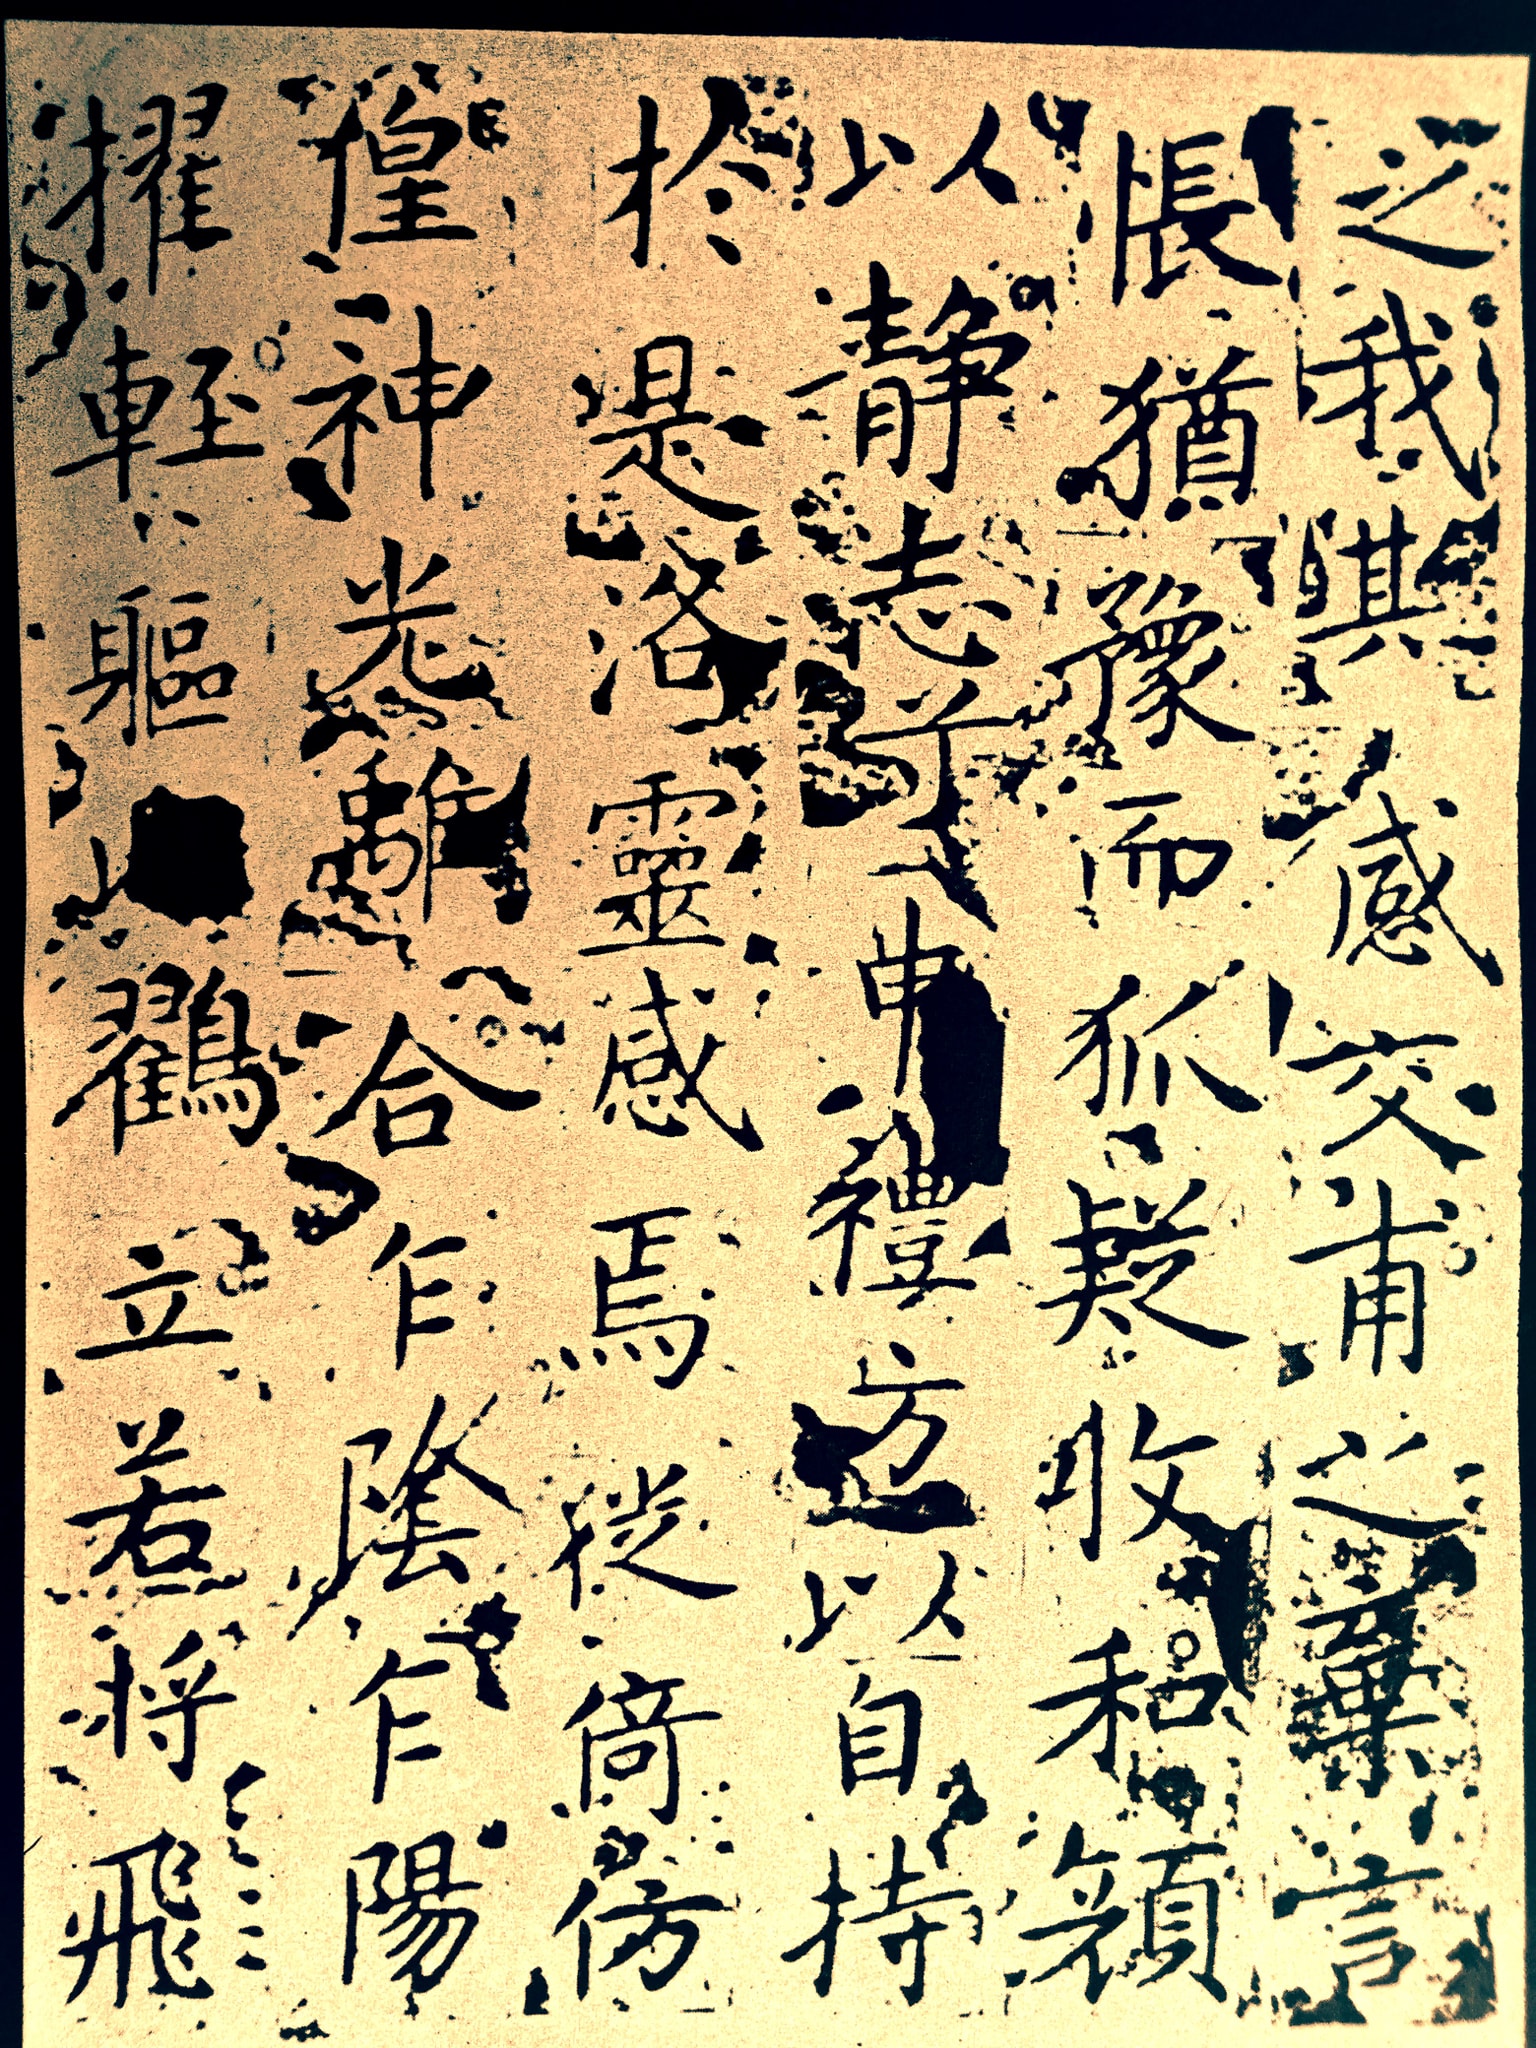 之我感交甫之棄言
悵猶豫而狐疑收和顏
以静志兮申禮防以自持
於是洛靈感焉徙倚傍
徨神光離合乍陰乍陽
擢輕軀以鸐立若将飛